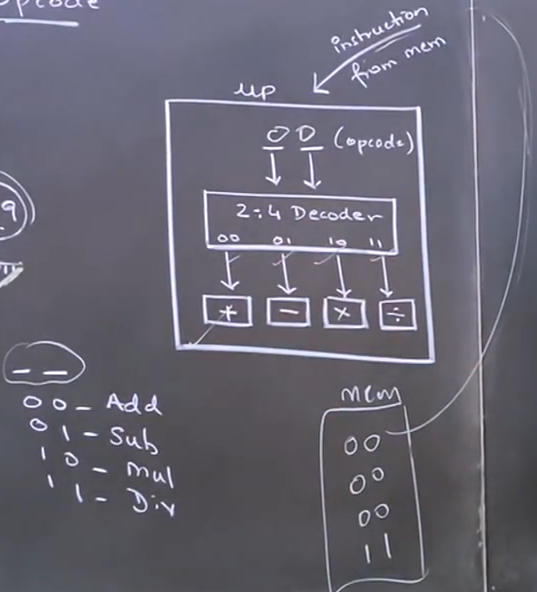 opcode
instruction
from mem
μp
0 0 (opcode)
2:4 Decoder
00 01 10 11
+ - × ÷
9
_ _
00 - Add
01 - Sub
10 - Mul
11 - Div
mem
00
00
00
11